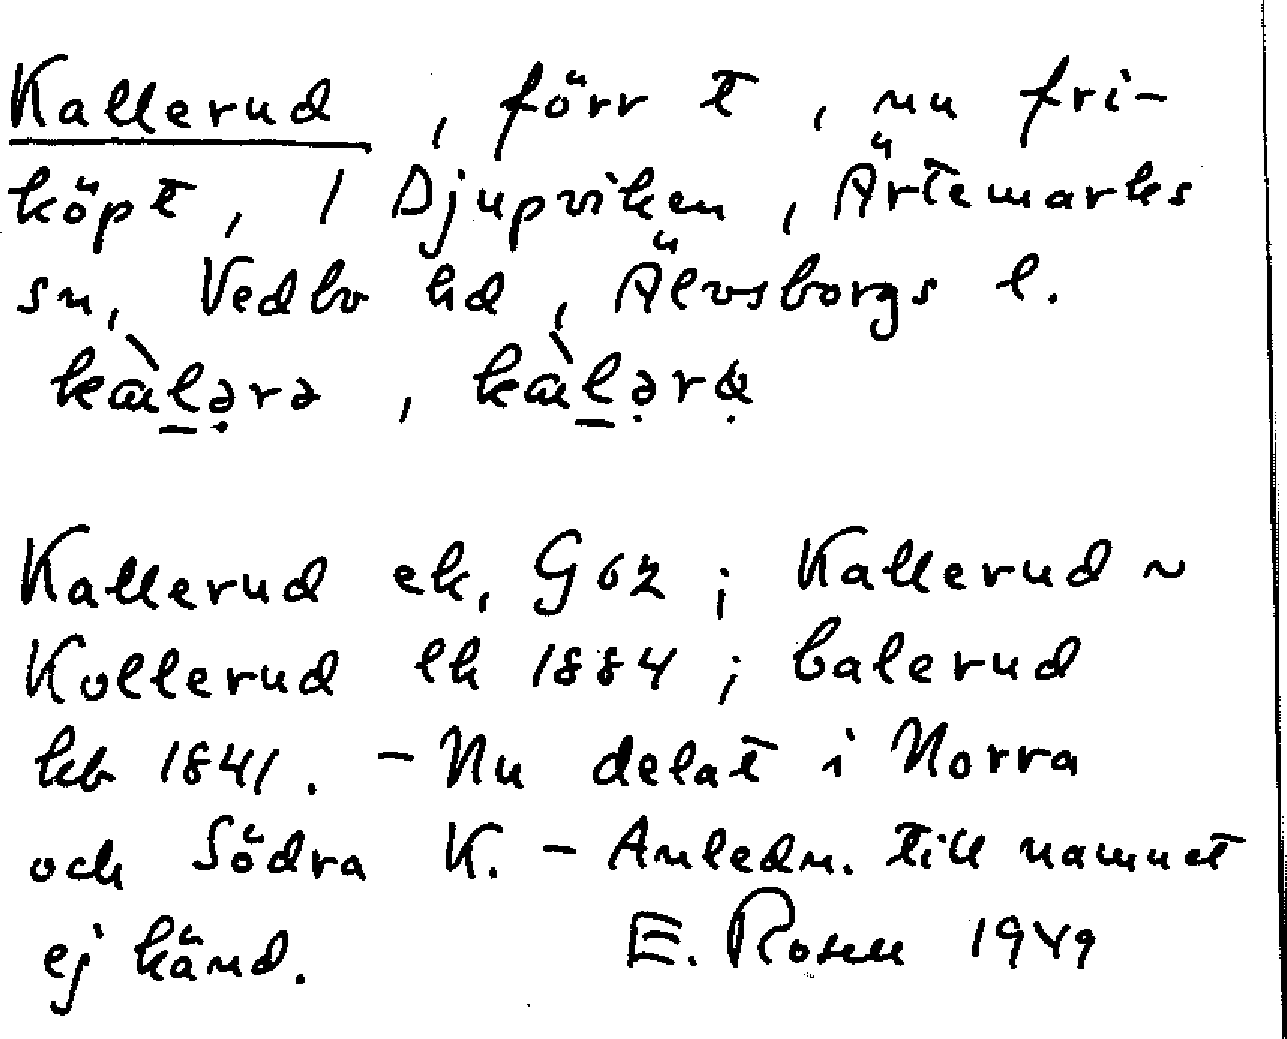 Kallerud, förr t, nu fri-
köpt, / Djupviken, Ärtemarks
sn, Vedbo hd, Älvsborgs l.
Kallerud ek, G 62; Kallerud ~
Kollerud lk 1884; Calerud
hb 1841. - Nu delat i Norra
och Södra K. - Anledn. till namnet
ej känd. E. Rosell 1949